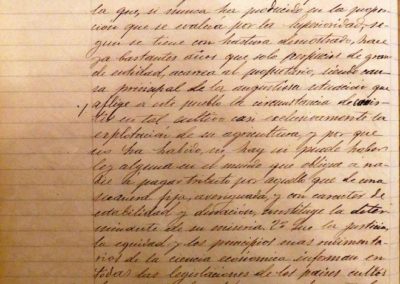 la que, si nunca ha producido en la propor-
cion que se evalua por la Superioridad, se-
gun se tiene con hartura demostrado, hace
ya bastantes años que solo perjuicios de gran
de entidad, acarrea al propietario, siendo cau-
sa principal de la angustiosa situacion que
aflige a este pueblo la circunstancia de con-
tal cultivo casi esclusivamente la
esplotacion de su agricultura, y por que
ni ha habido, ni hay ni puede haber
ley alguna en el mundo que oblique a na-
die a pagar tributo por aquello que de una
manera fija, averiguada, y con caracter de
estabilidad y duracion, constituye la deter-
minante de su miseria. Que la justicia,
la equidad y los principios mas rudimenta-
rios de la ciencia económica informan en
todas las legislaciones de los paises cultos